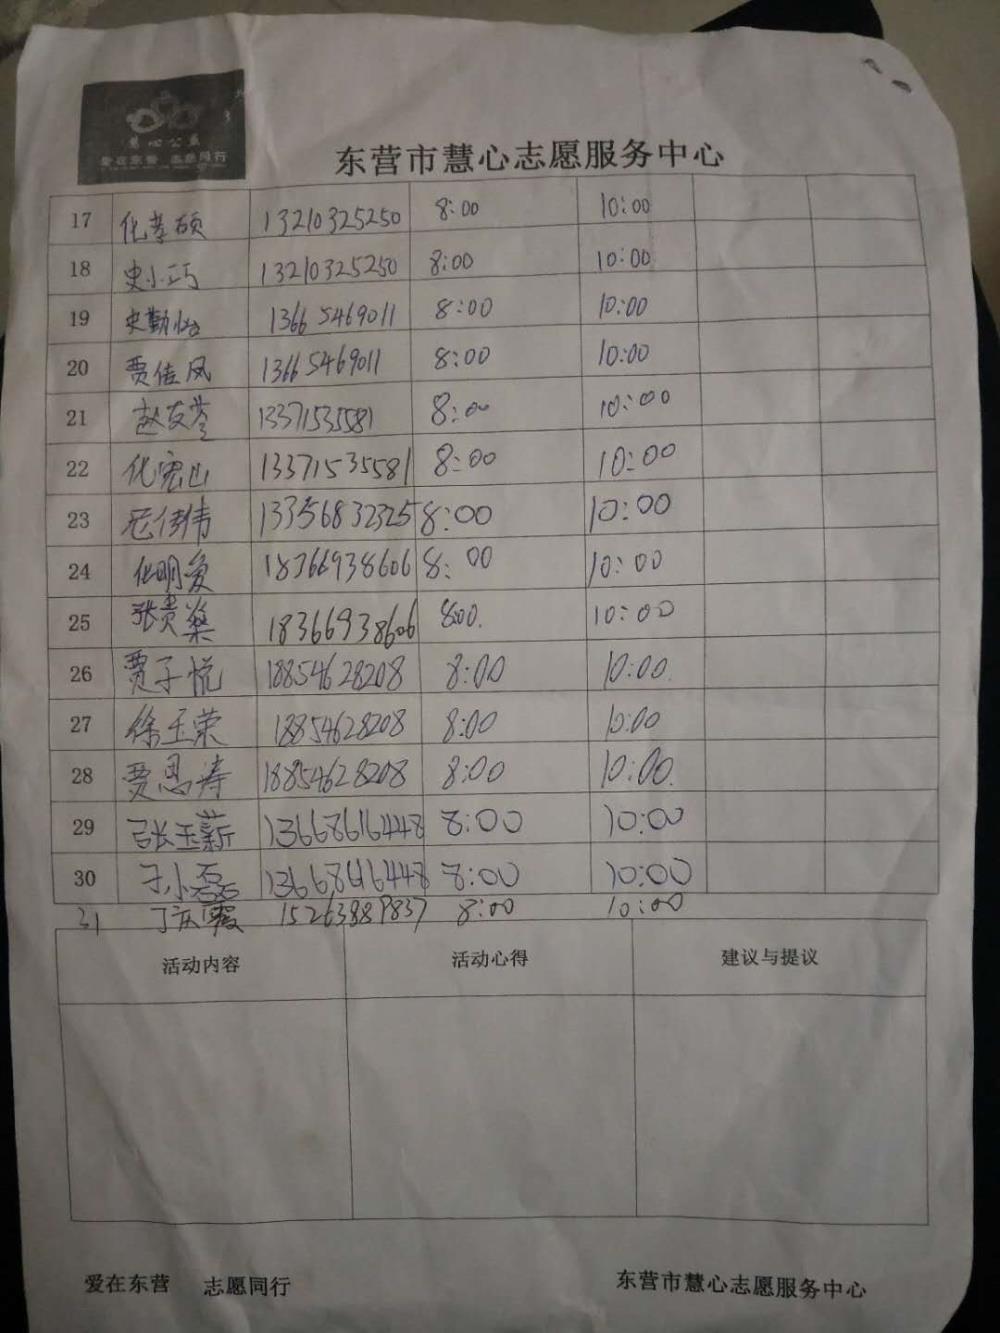 慧心公益
爱在东营 志愿同行
东营市慧心志愿服务中心
17 化孝硕 13210325250 8:00 10:00
18 史小巧 13210325250 8:00 10:00
19 史勤怡 13665469011 8:00 10:00
20 贾佳凤 13665469011 8:00 10:00
21 赵友苓 13371535581 8:00 10:00
22 化宏山 13371535581 8:00 10:00
23 8:00 10:00
24 化明爱 18366938606 8:00 10:00
25 张贵燊 18366938606 8:00. 10:00
26 贾子悦 18854628208 8:00 10:00.
27 徐玉荣 18854628208 8:00 10:00
28 贾恩涛 18854628208 8:00 10:00.
29 张玉薪 8:00 10:00
30 于小磊 8:00 10:00
31 丁庆霞 15263889837 8:00 10:00
活动内容 活动心得 建议与提议
爱在东营 志愿同行 东营市慧心志愿服务中心